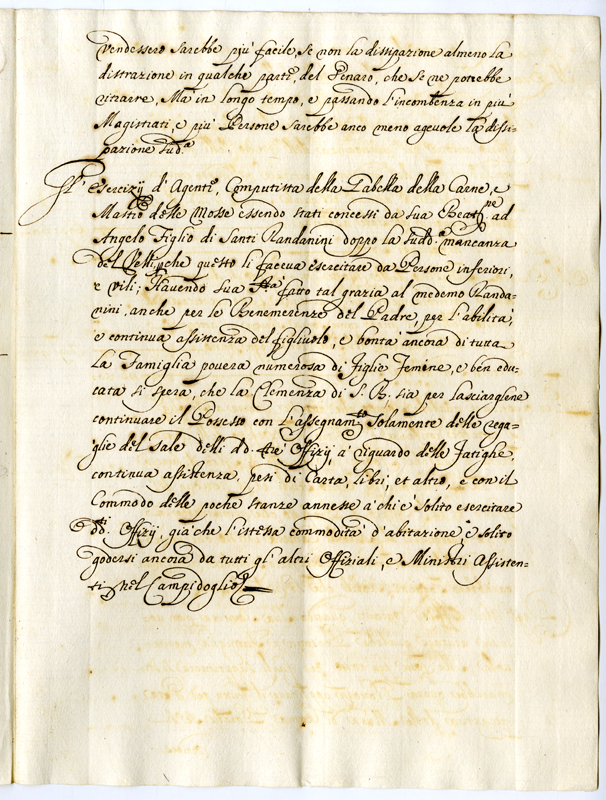 vendessero sarebbe più facile, se non la dissipazione almeno la
distrazione in qualche parte, del Denaro, che se ne potrebbe
ritrarre, Ma in longo tempo, e passando l'incombenza in più
Magistrati, e più Persone sarebbe anco meno agevole la dissi-
pazione sud.ª
Gl'esercizij d'Agente, Computista della Tabella della Carne, e
Mastro delle Mosse essendo stati concessi da sua Beat.ne ad
Angelo Figlio di Santi Randanini doppo la sudd.ª mancanza
del che questo li faceva esercitare da Persone inferiori,
e vili; Havendo sua S.tà fatto tal grazia al medemo Randa-
nini, anche per le Benemerenze del Padre, per l'abilità,
e continua assistenza del figliuolo, e bontà ancora di tutta
la Famiglia povera numerosa di Figlie Femine, e ben edu-
cata si spera, che la Clemenza di S. B. sia per lasciarglene
continuare il Possesso con l'assegnam.to solamente delle rega-
glie del sale delli dd. trè Offizij, à riguardo delle fatighe,
continua assistenza, pesi di Carta, libri, et altro, e con il
Commodo delle poche stanze annesse à chi è solito esercitare
dd.ti Offizij, già che l'istessa commodità d'abitazione è solito
godersi ancora da tutti gl'altri Offiziali, e Ministri Assisten-
ti nel Campidoglio